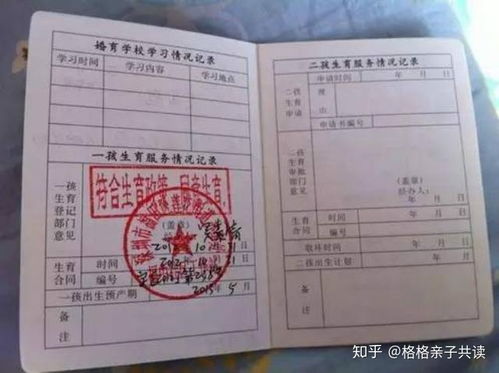 婚育学校学习情况记录
学习时间 学习内容 学习地点
一孩生育服务情况记录
一孩生育登记部门意见
符合生育政策，同意生育。
（盖章）
生育合同
时间
编号
一孩出生预产期
2015.5
备注
二孩生育服务情况记录
二孩生育申请
申请时间 年 月 日
理由
申请书编号
二孩生育审批部门意见
（盖章）
经办人：
年 月 日
生育合同
时间 年 月 日
编号
取环时间 年 月 日
二孩出生计划
备注
知乎 @格格亲子共读